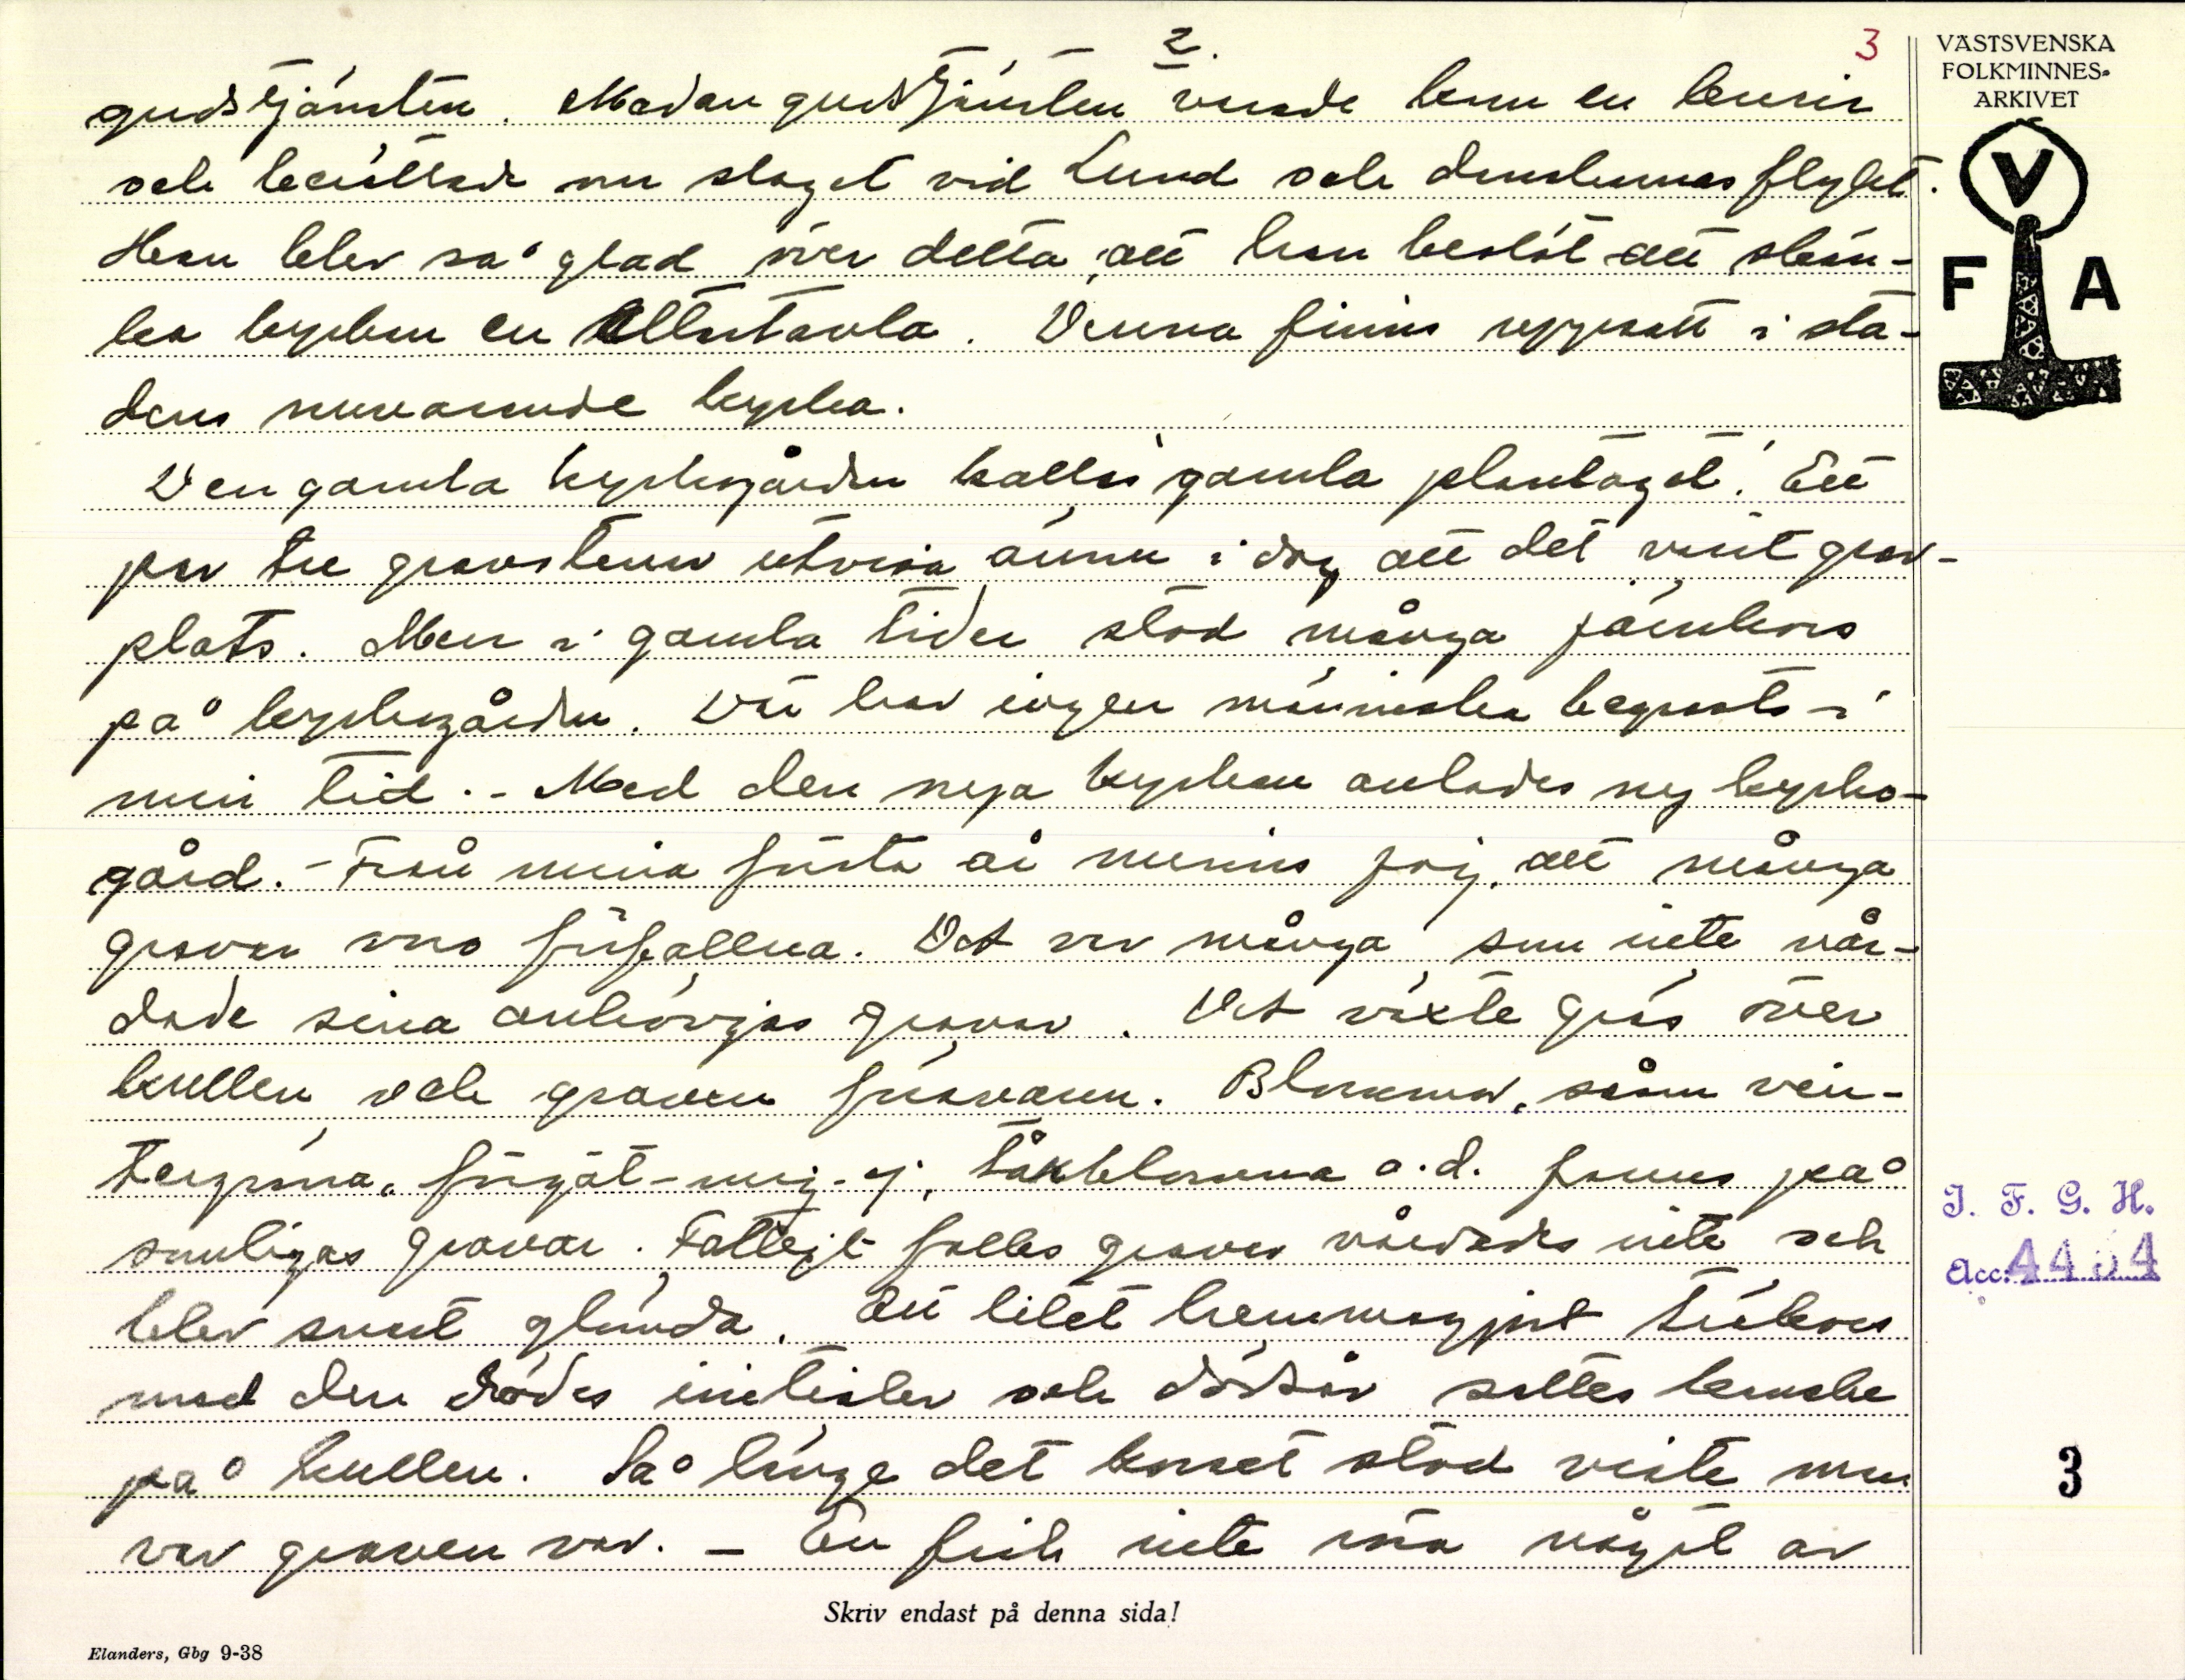 2.
3
VÄSTSVENSKA
FOLKMINNES-
ARKIVET
V
F A
gudstjänsten. Medan gudstjänsten varade kom en kurir
och berättade om slaget vid Lund och danskarnas flykt.
Han blev så glad över detta, att han beslöt att skän-
ka kyrkan en altartavla. Denna finns uppsatt i sta-
dens nuvarande kyrka.
Den gamla kyrkogården kallas "gamla plantaget". Ett
par tre gravstenar utvisa ännu i dag att det varit grav-
plats. Men i gamla tider stod många järnkors
på kyrkogården. Där har ingen människa begravts i
min tid. - Med den nya kyrkan anlades ny kyrko-
gård. - Från mina första år minns jag, att många
gravar voro förfallna. Det var många, som inte vår-
dade sina anhörigas gravar. Det växte gräs över
kullen, och graven försvann. Blommor, såsom vin-
tergröna, förgät-mig-ej, låkblomma o.d. fanns på
somligas gravar. Fattigt folks gravar vårdades inte och
blev snart glömda. Ett litet hemmagjort träkors
med den dödes initialer och dödsår sattes kanske
på kullen. Så länge det korset stod visste man
var graven var. - En fick inte röra något av
J. F. G. H.
Acc. 4454
3
Skriv endast på denna sida!
Elanders, Gbg 9-38